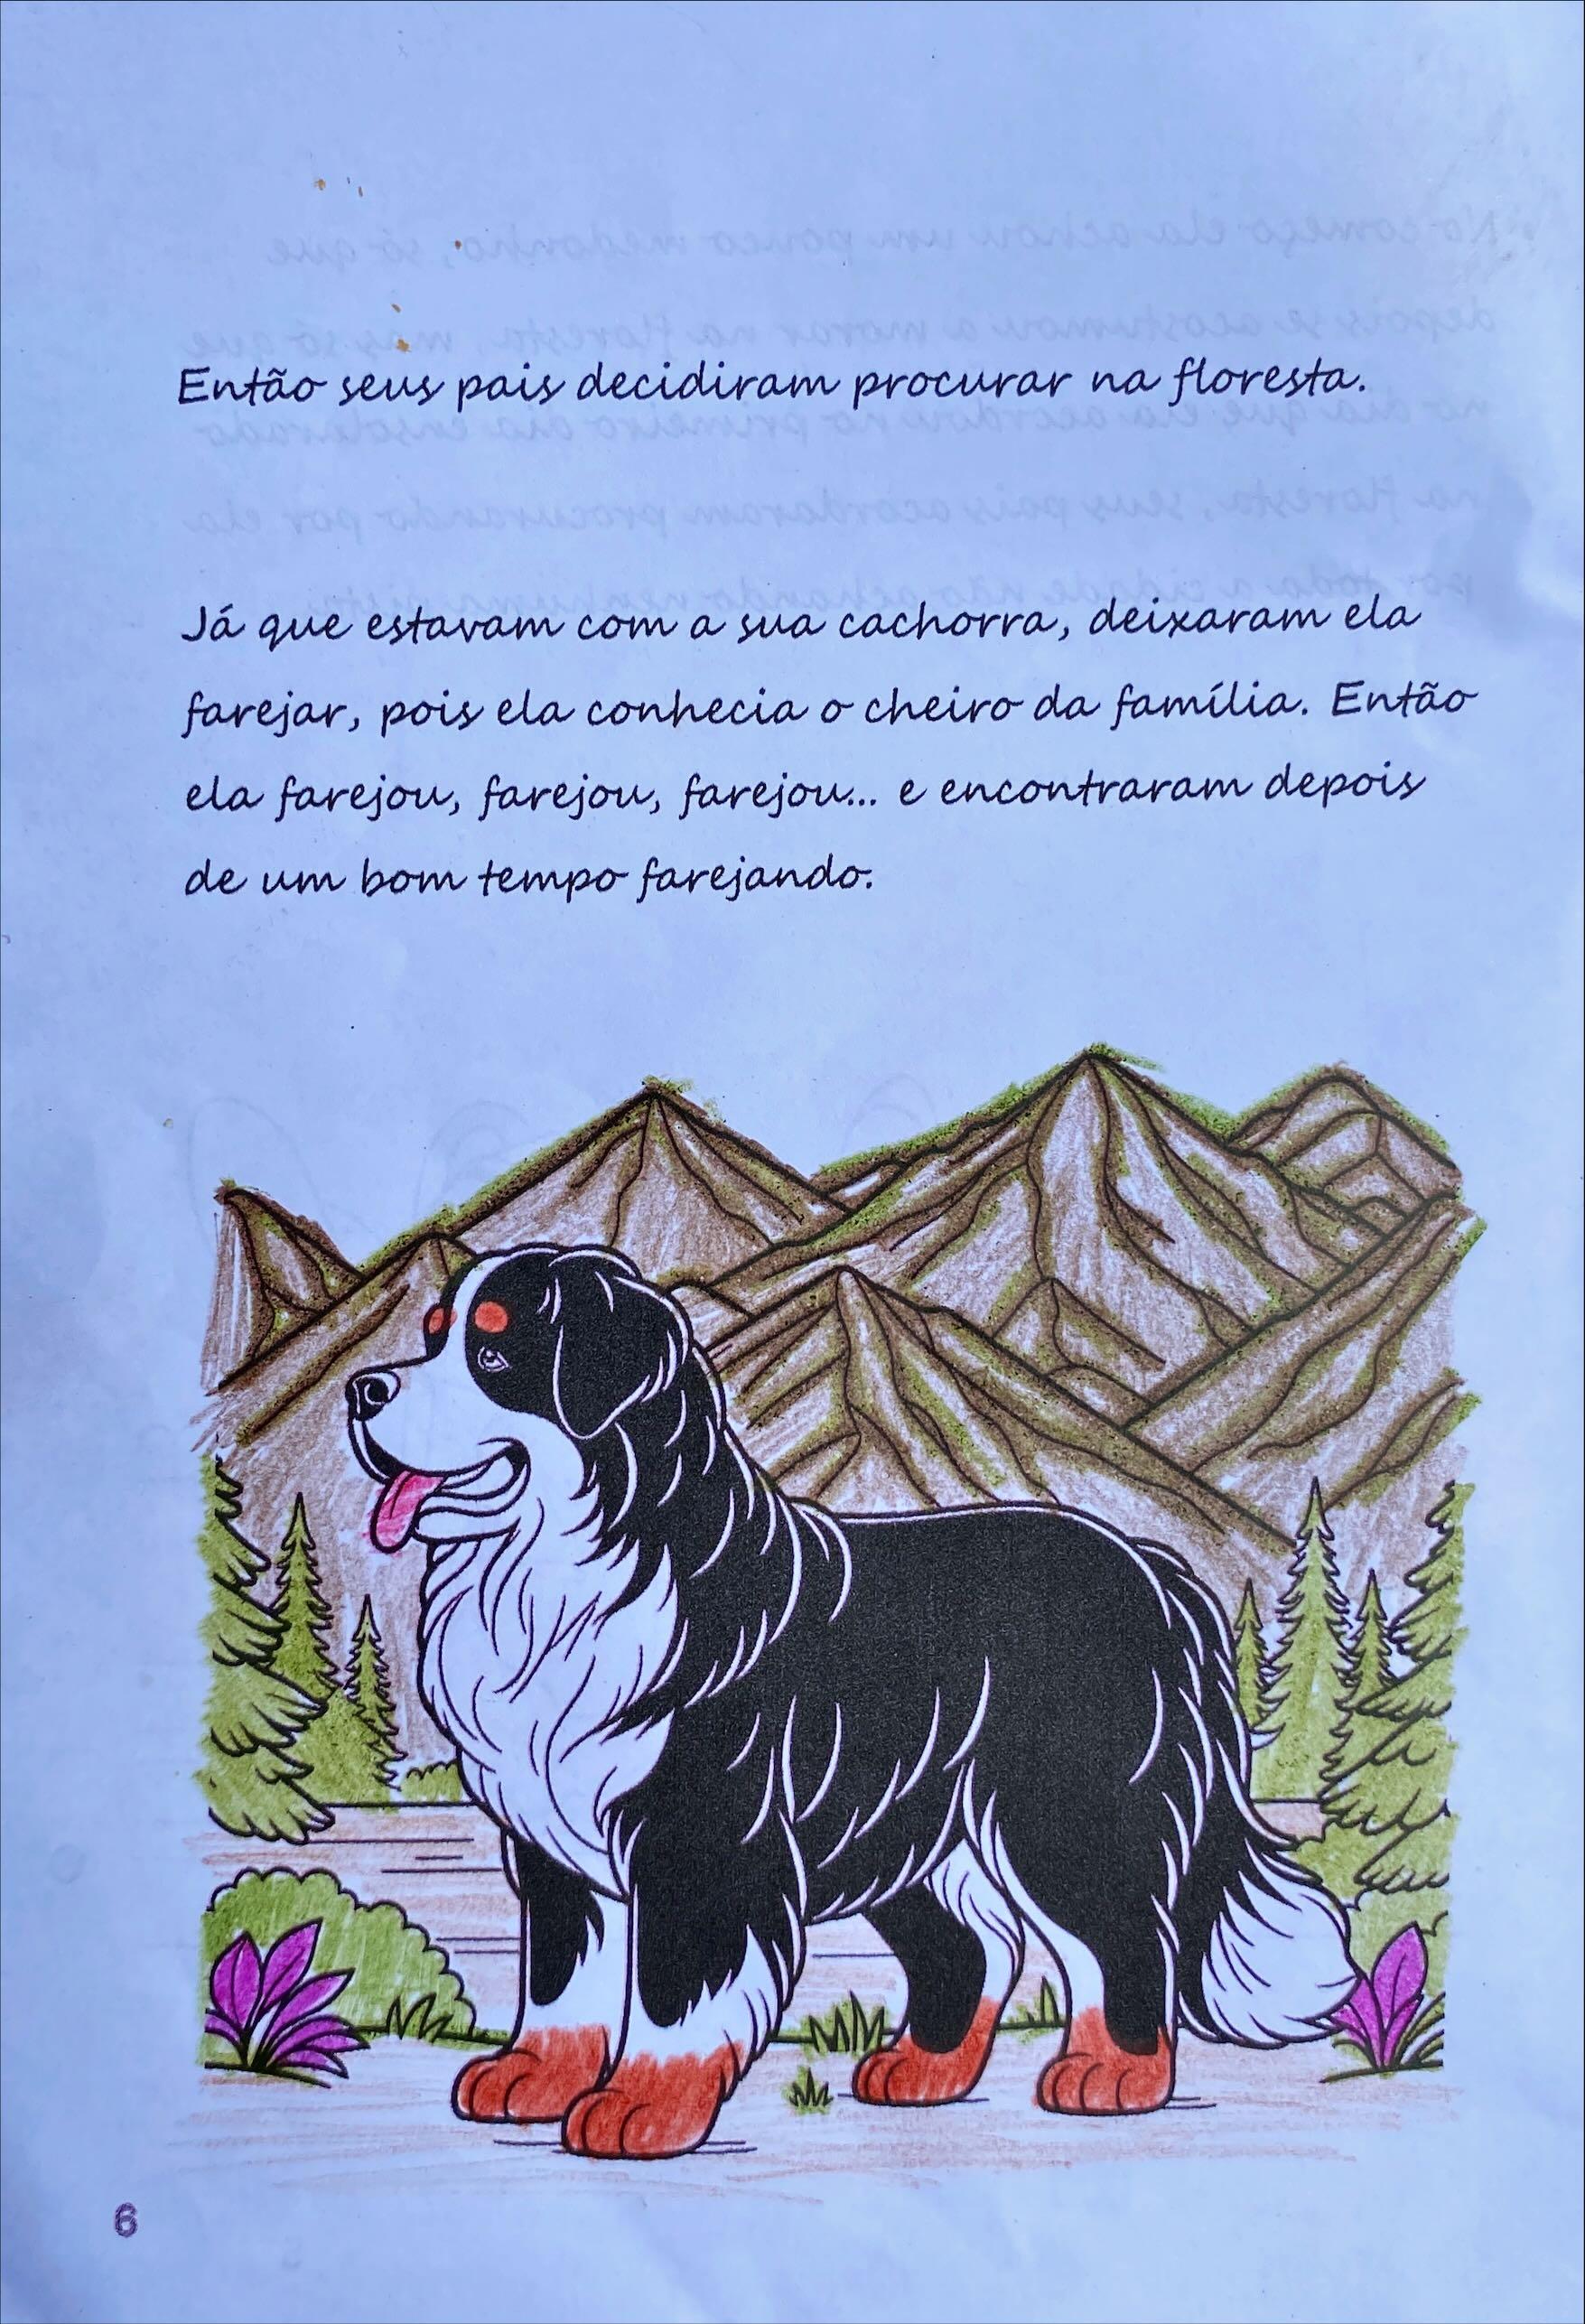 Então seus pais decidiram procurar na floresta.
Já que estavam com a sua cachorra, deixaram ela
farejar, pois ela conhecia o cheiro da família. Então
ela farejou, farejou, farejou... e encontraram depois
de um bom tempo farejando.
6